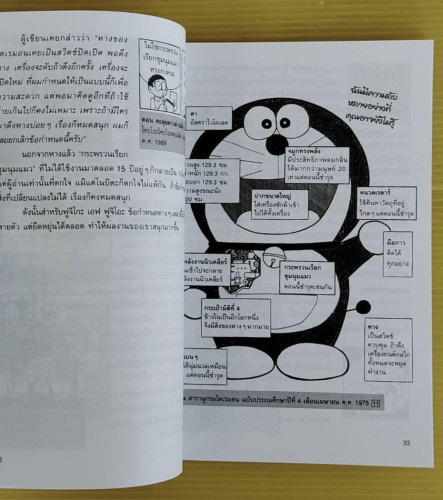 ผู้เขียนเคยกล่าวว่า "หางของ
เคยเป็นสวิตช์ปิดเปิด พอดึง
เครื่องจะดับถ้าดึงอีกครั้ง เครื่องจะ
ใหม่ ที่ผมกำหนดให้เป็นแบบนี้ก็เพื่อ
ความสะดวก แต่พอมาคิดดูอีกทีถ้าใช้
เกินไปก็คงไม่เหมาะ เพราะถ้ามีใคร
ดึงหางบ่อยๆ เรื่องก็หมดสนุก ผมก็
ยกเลิกข้อกำหนดนี้ครับ"
นอกจากหางแล้ว "กระพรวนเรียก
ชุมนุมแมว" ที่ไม่ได้ใช้งานมาตลอด 15 ปี
แต่ในนิตยะก็
เปลี่ยนแปลงไม่ได้ เรื่องก็คงหมดสนุก
ดังนั้นสำหรับฟูจิโกะ เอฟ ฟูจิโอะ ข้อกำหนดต่างๆ
แต่ยืดหยุ่นได้ตลอด ทำให้ผลงานของเขาสนุกมากขึ้น
ไม่ใช่กระพรวน
เรียกชุมนุมแมว
หรอกเหรอ
ตอน
ค.ศ. 1989
ฉันมีความลับ
หลายอย่างที่
คุณอาจยังไม่รู้
ตา
อัลตราไวโอเลต
129.3 ซม.
129.3 กก.
129.3 ซม.
จมูกทรงพลัง
มีประสิทธิภาพดมกลิ่น
ได้มากกว่ามนุษย์ 20
เท่าแต่ตอนนี้ชำรุด
ปากขนาดใหญ่
ใส่เครื่องซักผ้าเข้า
ไปได้ทั้งเครื่อง
หนวดเรดาร์
ใช้ค้นหาวัตถุที่อยู่
ไกลๆ แต่ตอนนี้ชำรุด
มือกาว
ติดได้
ทุกอย่าง
พลังงานนิวเคลียร์
เข้าไปจะกลาย
นิวเคลียร์
กระพรวนเรียก
ชุมนุมแมว
ตอนนี้ชำรุดเช่นกัน
กระเป๋ามิติที่ 4
ข้างในเป็นอีกโลกหนึ่ง
จึงมีสิ่งของต่างๆ มากมาย
หาง
เป็นสวิตช์
ควบคุม ถ้าดึง
เครื่องยนต์กลไก
ทั้งหมดจะหยุด
ทำงาน
แบนๆ
แต่ตอนนี้ชำรุด
สารานุกรมโดเรมอน ฉบับประถมศึกษาปีที่ 4 เดือนเมษายน ค.ศ. 1975 11
33